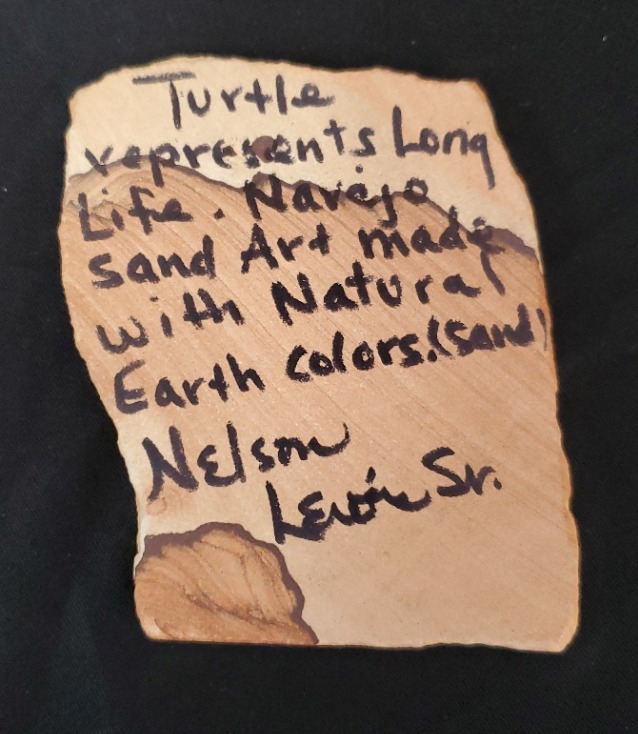 Turtle
represents Long
Life. Navajo
sand Art made
with Natural
Earth colors.(sand)
Nelson
Lewis Sr.